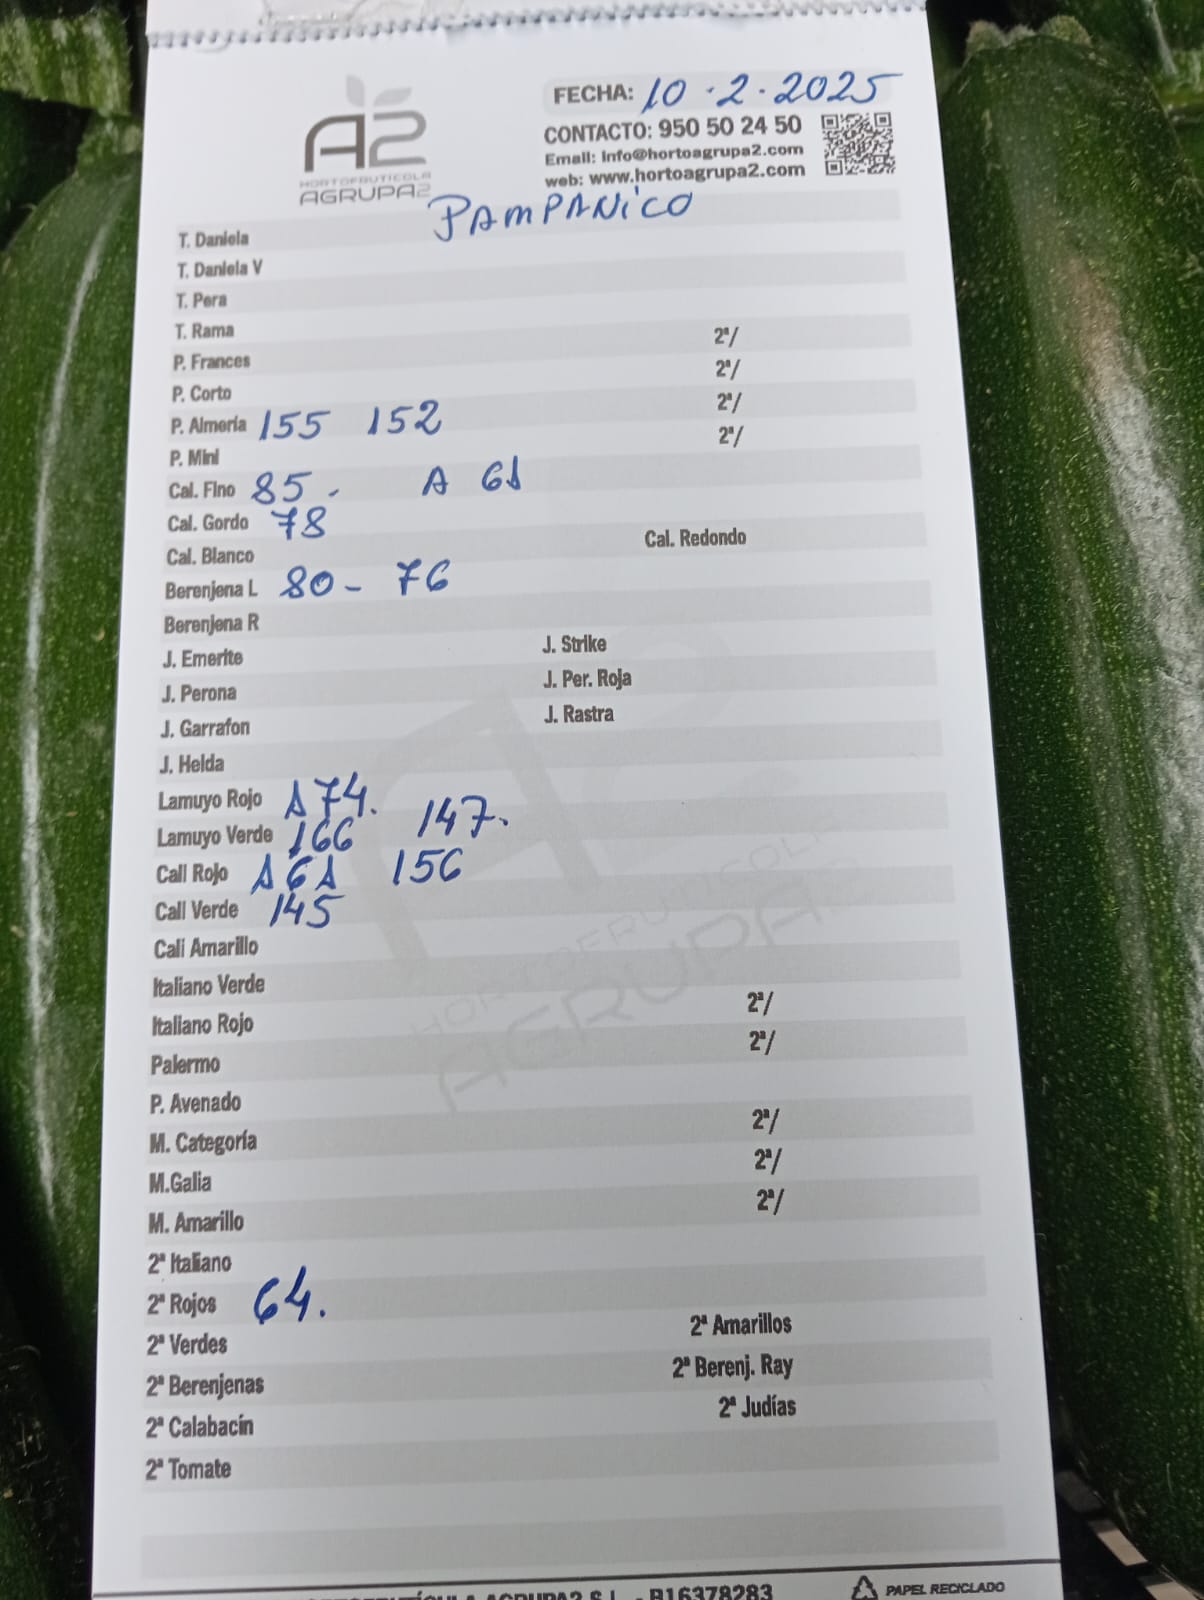 FECHA: 10.2.2025
A2
HORTOFRUTICOLA
AGRUPA2
CONTACTO: 950 50 24 50
Email: info@hortoagrupa2.com
web: www.hortoagrupa2.com
PAMPANICO
T. Daniela
T. Daniela V
T. Pera
T. Rama 2ª/
P. Frances 2ª/
P. Corto 2ª/
P. Almería 155 152 2ª/
P. Mini
Cal. Fino 85. A 61
Cal. Gordo 78
Cal. Blanco Cal. Redondo
Berenjena L 80 - 76
Berenjena R
J. Emerite J. Strike
J. Perona J. Per. Roja
J. Garrafon J. Rastra
J. Helda
Lamuyo Rojo A 74.
Lamuyo Verde 166 147.
Cali Rojo A 61 156
Cali Verde 145
Cali Amarillo
Italiano Verde
Italiano Rojo 2ª/
Palermo 2ª/
P. Avenado
M. Categoría 2ª/
M.Galia 2ª/
M. Amarillo 2ª/
2ª Italiano
2ª Rojos 64.
2ª Verdes 2ª Amarillos
2ª Berenjenas 2ª Berenj. Ray
2ª Calabacín 2ª Judías
2ª Tomate
AGRUPA2 S.L. - B16378283
PAPEL RECICLADO